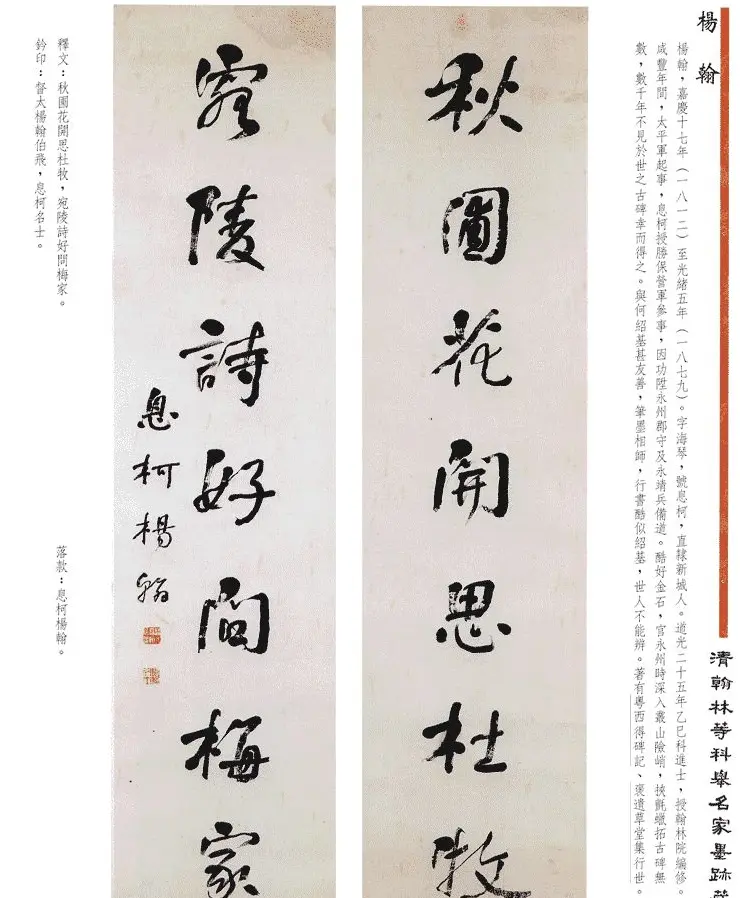 楊翰
楊翰，嘉慶十七年（一八一二）至光緒五年（一八七九）。字海琴，號息柯，直隸新城人。道光二十五年乙巳科進士，授翰林院編修。
咸豐年間，太平軍起事，息柯授勝保營軍參事，因功陞永州郡守及永靖兵備道。酷好金石，官永州時深入叢山險峭，挾氈蠟拓古碑無
數，數千年不見於世之古碑幸而得之。與何紹基甚友善，筆墨相師，行書酷似紹基，世人不能辨。著有粵西得碑記、褒遺草堂集行世。
清翰林等科舉名家墨跡
秋圃花開思杜牧
宛陵詩好問梅家
息柯楊翰
釋文：秋圃花開思杜牧，宛陵詩好問梅家。
落款：息柯楊翰。
鈐印：督太楊翰伯飛，息柯名士。